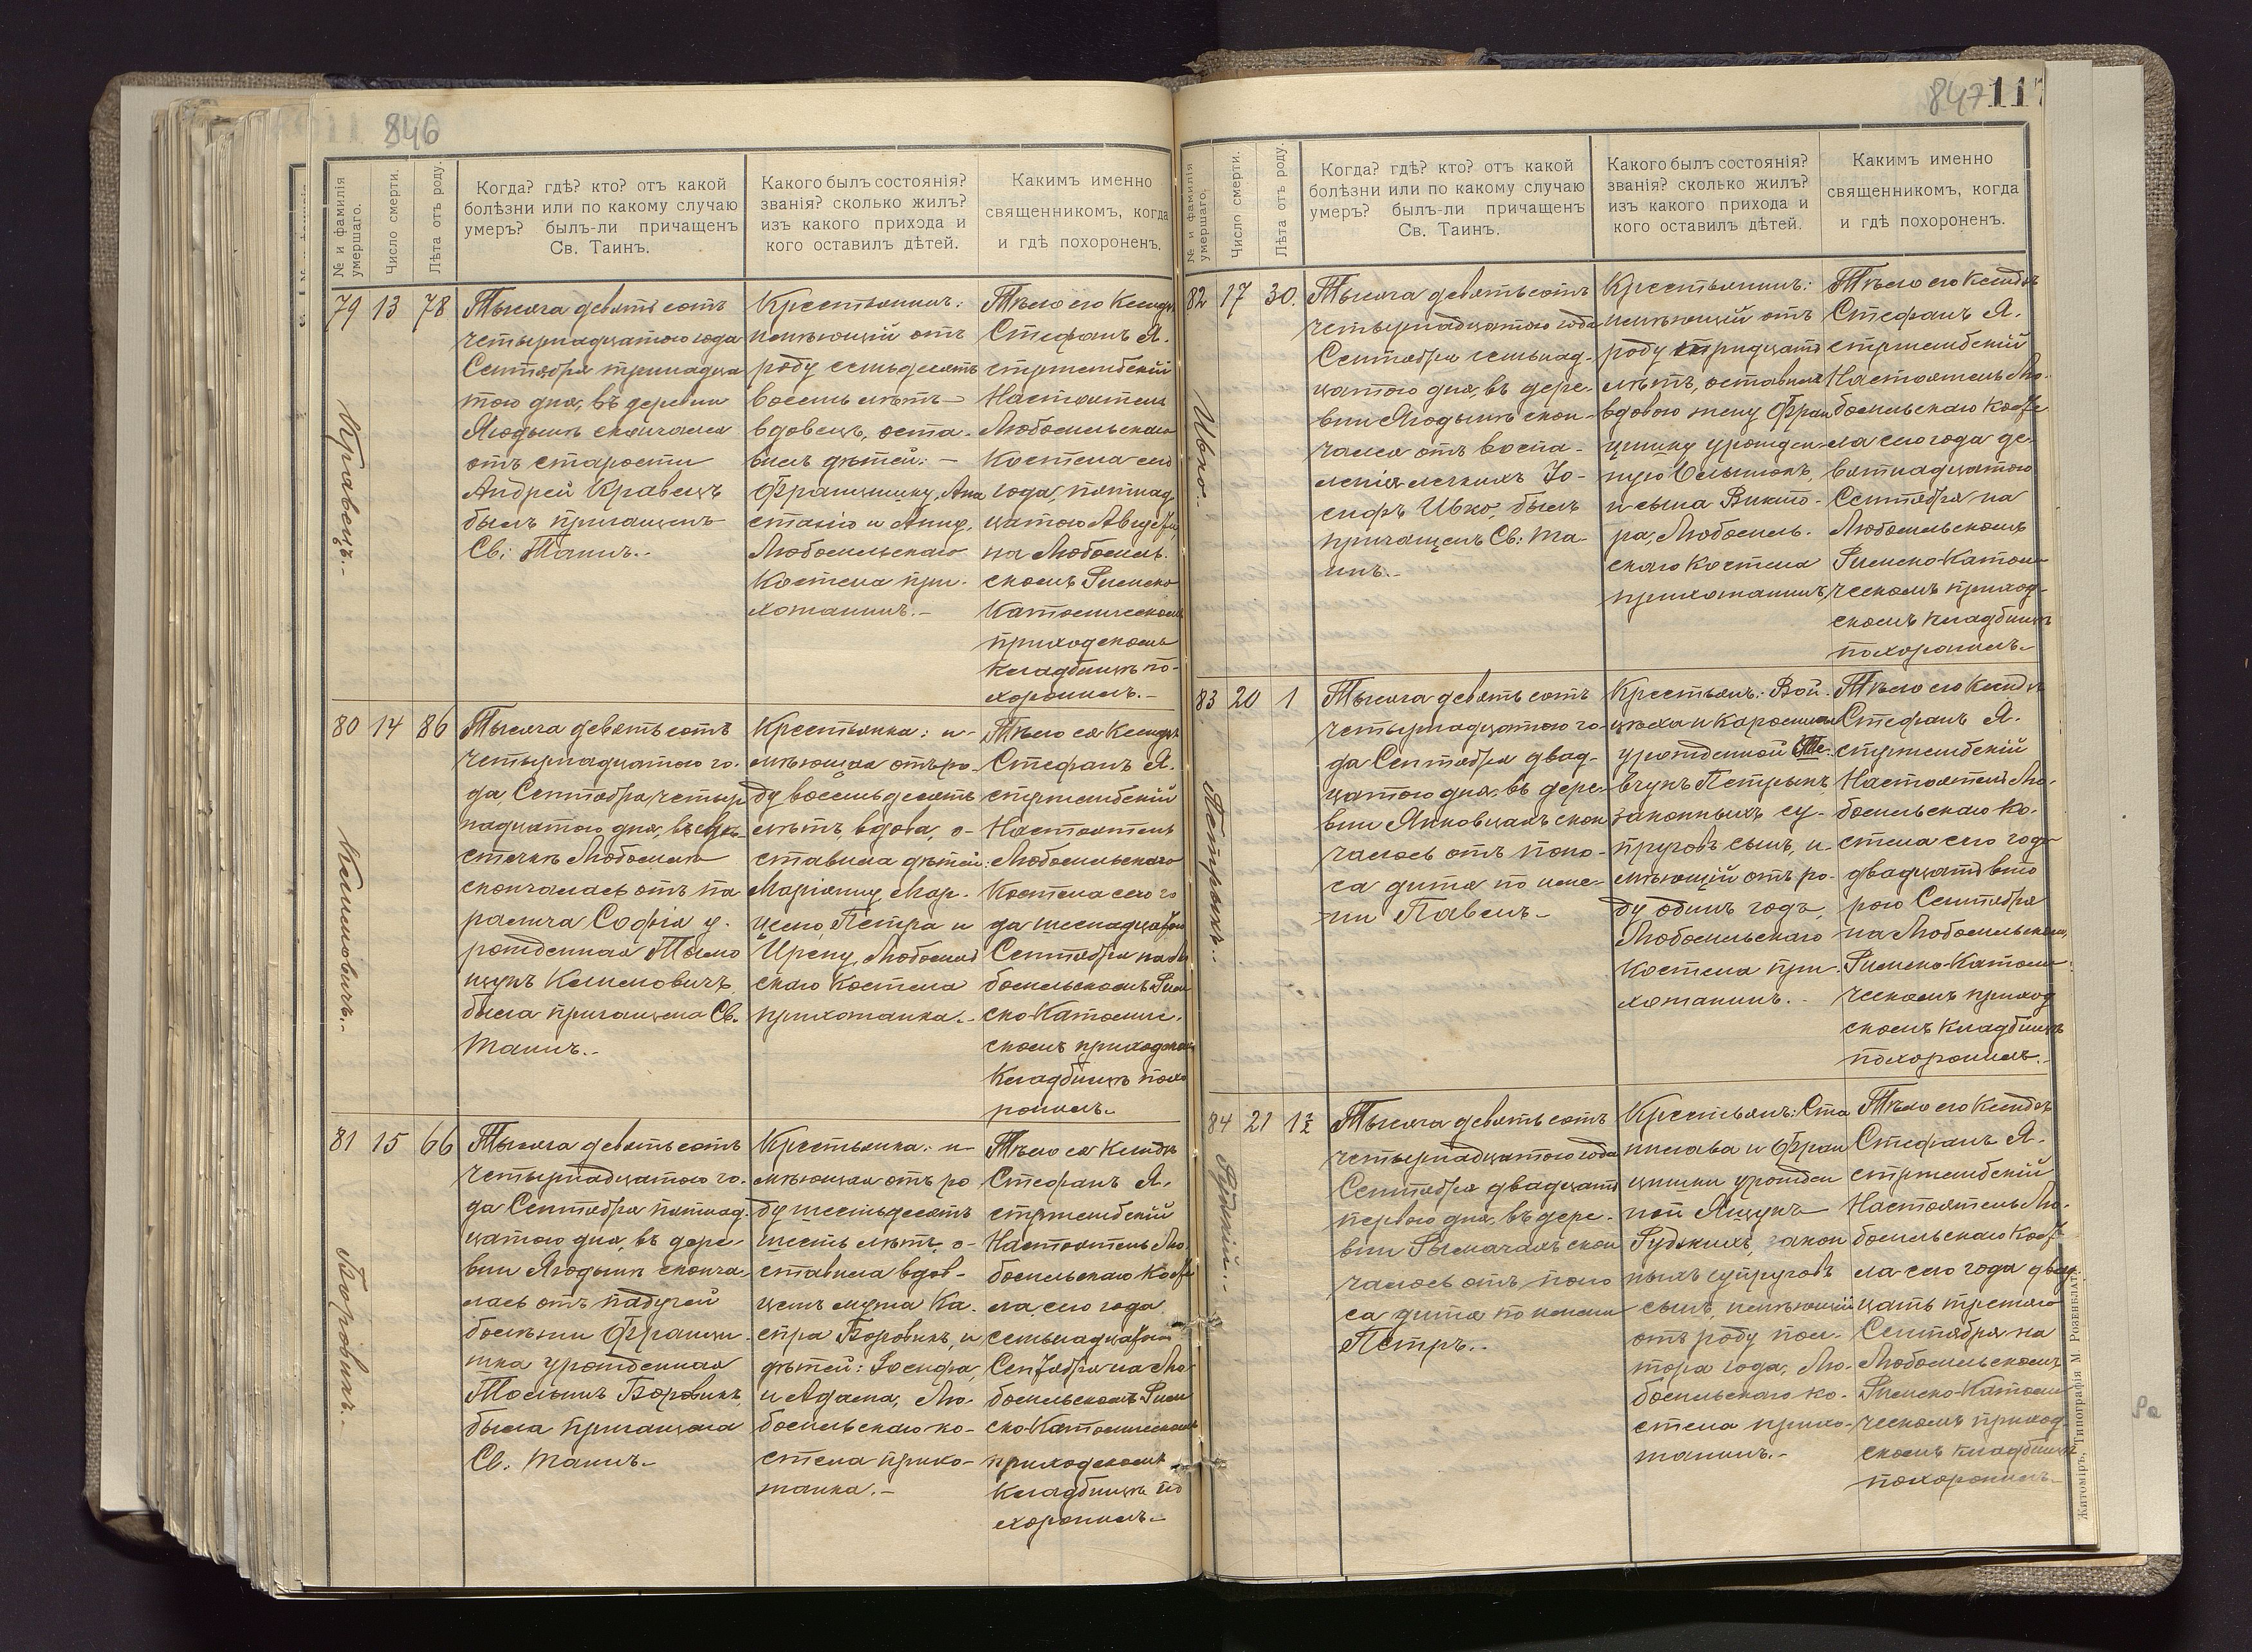 846
№ и фамилія умершаго.
Число смерти.
Лѣта отъ роду.
Когда? гдѣ? кто? отъ какой
болѣзни или по какому случаю
умеръ? былъ-ли причащенъ
Св. Таинъ.
Какого былъ состоянія?
званія? сколько жилъ?
изъ какого прихода и
кого оставилъ дѣтей.
Какимъ именно
священникомъ, когда
и гдѣ похороненъ.
79 13 78
Кравецъ.-
Тысяча девятьсотъ
четырнадцатого года
Сентября тринадца
того дня, въ деревни
Ягодынѣ скончался
отъ старости
Андрей Кравецъ
былъ причащенъ
Св: Таинъ.-
Крестьянинъ:
имѣющій отъ
роду семьдесятъ
восемь лѣтъ-
вдовецъ, оста-
вилъ дѣтей:-
Францишку, Ана
стасію и Анну,
Любомльскаго
Костела при-
хожанинъ.-
Тѣло его Ксендзъ
Стефанъ Я-
стржембскій
Настоятель
Любомльскаго
Костела сего
года, пятнад
цатого Августа,
на Любомль-
скомъ Римско
Католическомъ
приходскомъ
кладбищѣ по-
хоронилъ.-
80 14 86
Климовичъ.-
Тысяча девятьсотъ
четырнадцатого го-
да, Сентября четыр
надцатого дня, въ мѣ-
стечкѣ Любомлѣ
скончалась отъ па
ралича Софія у-
рожденная
Климовичъ,
была причащена Св.
Таинъ.-
Крестьянка: и-
мѣющая отъ ро-
ду восемьдесятъ
лѣтъ, вдова, о-
ставила дѣтей:
Маріянну, Мар-
Петра и
Ирену, Любомль
скаго Костела
прихожанка.-
Тѣло ея Ксендзъ
Стефанъ Я-
стржембскій
Настоятель
Любомльскаго
Костела сего го
да шеснадцатого
Сентября на Лю
бомльскомъ Рим
ско-Католиче-
скомъ приходскомъ
Кладбищѣ похо
ронилъ.-
81 15 66
Боровикъ.-
Тысяча девятьсотъ
четырнадцатого го-
да Сентября пятнад-
цатого дня, въ дере-
вни Ягодынѣ сконча-
лась отъ падучей
болѣзни Франци-
шка урожденная
Боровикъ,
была причащена
Св. Таинъ.-
Крестьянка: и-
мѣющая отъ ро
ду шестьдесятъ
шесть лѣтъ, о-
ставила вдов-
цемъ мужа Ка-
спра Боровикъ, и
дѣтей: Іосифа,
и Адама, Лю-
бомльскаго ко-
стела прихо-
жанка.-
Тѣло ея Ксендзъ
Стефанъ Я-
стржембскій
Настоятель Лю
бомльскаго Косте
ла сего года
семьнадцатого
Сентября на Лю
бомльскомъ Рим
ско-Католическомъ
приходскомъ
Кладбищѣ по
хоронилъ.-
847 117
№ и фамилія умершаго.
Число смерти.
Лѣта отъ роду.
Когда? гдѣ? кто? отъ какой
болѣзни или по какому случаю
умеръ? былъ-ли причащенъ
Св. Таинъ.
Какого былъ состоянія?
званія? сколько жилъ?
изъ какого прихода и
кого оставилъ дѣтей.
Какимъ именно
священникомъ, когда
и гдѣ похороненъ.
82 17 30.
Ивко.-
Тысяча девятьсотъ
четырнадцатого года
Сентября семьнад-
цатого дня, въ дере-
вни Ягодынѣ скон-
чался отъ воспа-
ленія легкихъ Іо-
сифъ Ивко, былъ
причащенъ Св: Та-
инъ.-
Крестьянинъ:
имѣющій отъ
роду тридцать
лѣтъ, оставилъ
вдовою жену Фран
цишку урожден-
ную
и сына Викто-
ра, Любомль-
скаго Костела
прихожанинъ,
Тѣло его Ксендзъ
Стефанъ Я-
стржембскій
Настоятель Лю-
бомльскаго Косте
ла сего года де-
вятнадцатого
Сентября на
Любомльскомъ
Римско-Католи
ческомъ приход-
скомъ Кладбищѣ
похоронилъ.-
83 20 1
Петрыкъ.-
Тысяча девятьсотъ
четырнадцатого го-
да Сентября двад-
цатого дня, въ дере-
вни Янковцахъ скон
чалось отъ поно-
са дитя по име-
ни Павелъ.-
Крестьянъ: Вой-
цѣха и Каролины
урожденной
Петрыкъ,
законныхъ су-
пруговъ сынъ, и-
мѣющій отъ ро-
ду одинъ годъ,
Любомльскаго
Костела при-
хожанинъ.-
Тѣло его Ксендзъ
Стефанъ Я-
стржембскій
Настоятель Лю-
бомльскаго Ко-
стела сего года
двадцать вто
рого Сентября
на Любомльскомъ,
Римско-Католи-
ческомъ приход
скомъ Кладбищѣ
похоронилъ.-
84 21 1½
Рудзкій.-
Тысяча девятьсотъ
четырнадцатого года
Сентября двадцать
перваго дня, въ дере-
вни Рымачахъ скон
чалось отъ поно
са дитя по имени
Петръ.-
Крестьянъ: Ста
нислава и Фран
цишки урожден
ной Яцукъ
Рудзкихъ, закон
ныхъ супруговъ
сынъ, имѣющій
отъ роду пол-
тора года, Лю-
бомльскаго ко-
стела прихо-
жанинъ.-
Тѣло его Ксендзъ
Стефанъ Я-
стржембскій
Настоятель Лю-
бомльскаго Косте
ла сего года двад
цать третяго
Сентября на
Любомльскомъ
Римско-Католи
ческомъ приход-
скомъ кладбищѣ
похоронилъ.-
Житоміръ, Типографія М. Розенблатъ